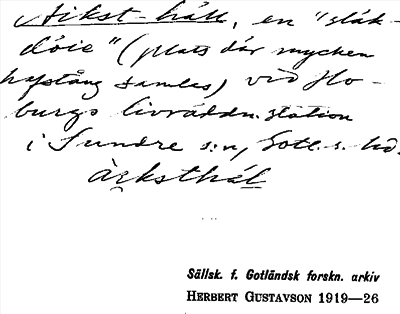 Aikst-häll, en "släk-
döie" (plats där mycken
hafstång samlas) vid Ho-
burgs livräddn.station
i Sundre s:n, Gotl. s. hd.
àrksthál
Sällsk. f. Gotländsk forskn. arkiv
HERBERT GUSTAVSON 1919—26